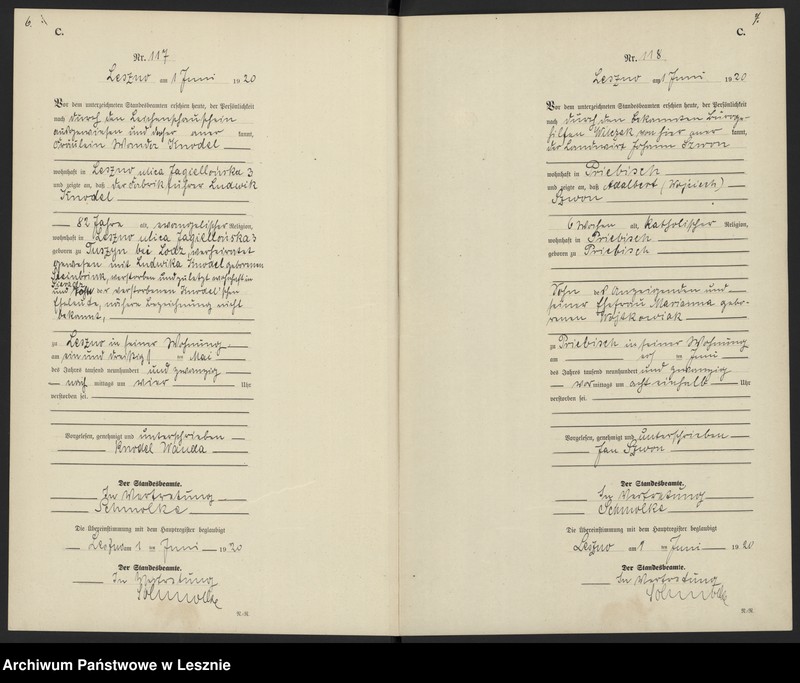 6.
C.
Nr. 117
Leszno am 1 Juni 1920
Vor dem unterzeichneten Standesbeamten erschien heute, der Persönlichkeit
nach durch den Leichenschauschein
ausgewiesen und daher aner kannt,
Fräulein Wanda Knodel
wohnhaft in Leszno ulica Jagiellońska 3
und zeigte an, daß der Fabrikführer Ludwik
Knodel
82 Jahre alt, evangelischer Religion,
wohnhaft in Leszno ulica Jagiellońska 3
geboren zu Tuszyn bei Lodz, verheiratet
gewesen mit Ludwika Knodel geborenen
Steinbrink, verstorben und zuletzt wohnhaft in
und der verstorbenen Knodel'schen
Eheleute, nähere Bezeichnung nicht
bekannt,
zu Leszno in seiner Wohnung
am ein und dreißig ten Mai
des Jahres tausend neunhundert und zwanzig
nach mittags um vier Uhr
verstorben sei.
Vorgelesen, genehmigt und unterschrieben
Knodel Wanda
Der Standesbeamte.
In Vertretung
Schmolke
Die Übereinstimmung mit dem Hauptregister beglaubigt
Leszno am 1 ten Juni 1920
Der Standesbeamte.
In Vertretung
Schmolke
R.-R.
7.
C.
Nr. 118
Leszno am 1 Juni 1920
Vor dem unterzeichneten Standesbeamten erschien heute, der Persönlichkeit
nach durch den bekannten Bürogehilfen
von hier aner kannt,
der Landwirt Johann Szwon
wohnhaft in Priebisch
und zeigte an, daß Adalbert (Wojciech)
Szwon
6 Wochen alt, katholischer Religion,
wohnhaft in Priebisch
geboren zu Priebisch
Sohn des Anzeigenden und
seiner Ehefrau Marianna gebo-
renen Wojtkowiak
zu Priebisch in seiner Wohnung
am ersten Juni
des Jahres tausend neunhundert und zwanzig
vor mittags um acht einhalb Uhr
verstorben sei.
Vorgelesen, genehmigt und unterschrieben
Jan Szwon
Der Standesbeamte.
In Vertretung
Schmolke
Die Übereinstimmung mit dem Hauptregister beglaubigt
Leszno am 1 ten Juni 1920
Der Standesbeamte.
In Vertretung
Schmolke
R.-R.
Archiwum Państwowe w Lesznie